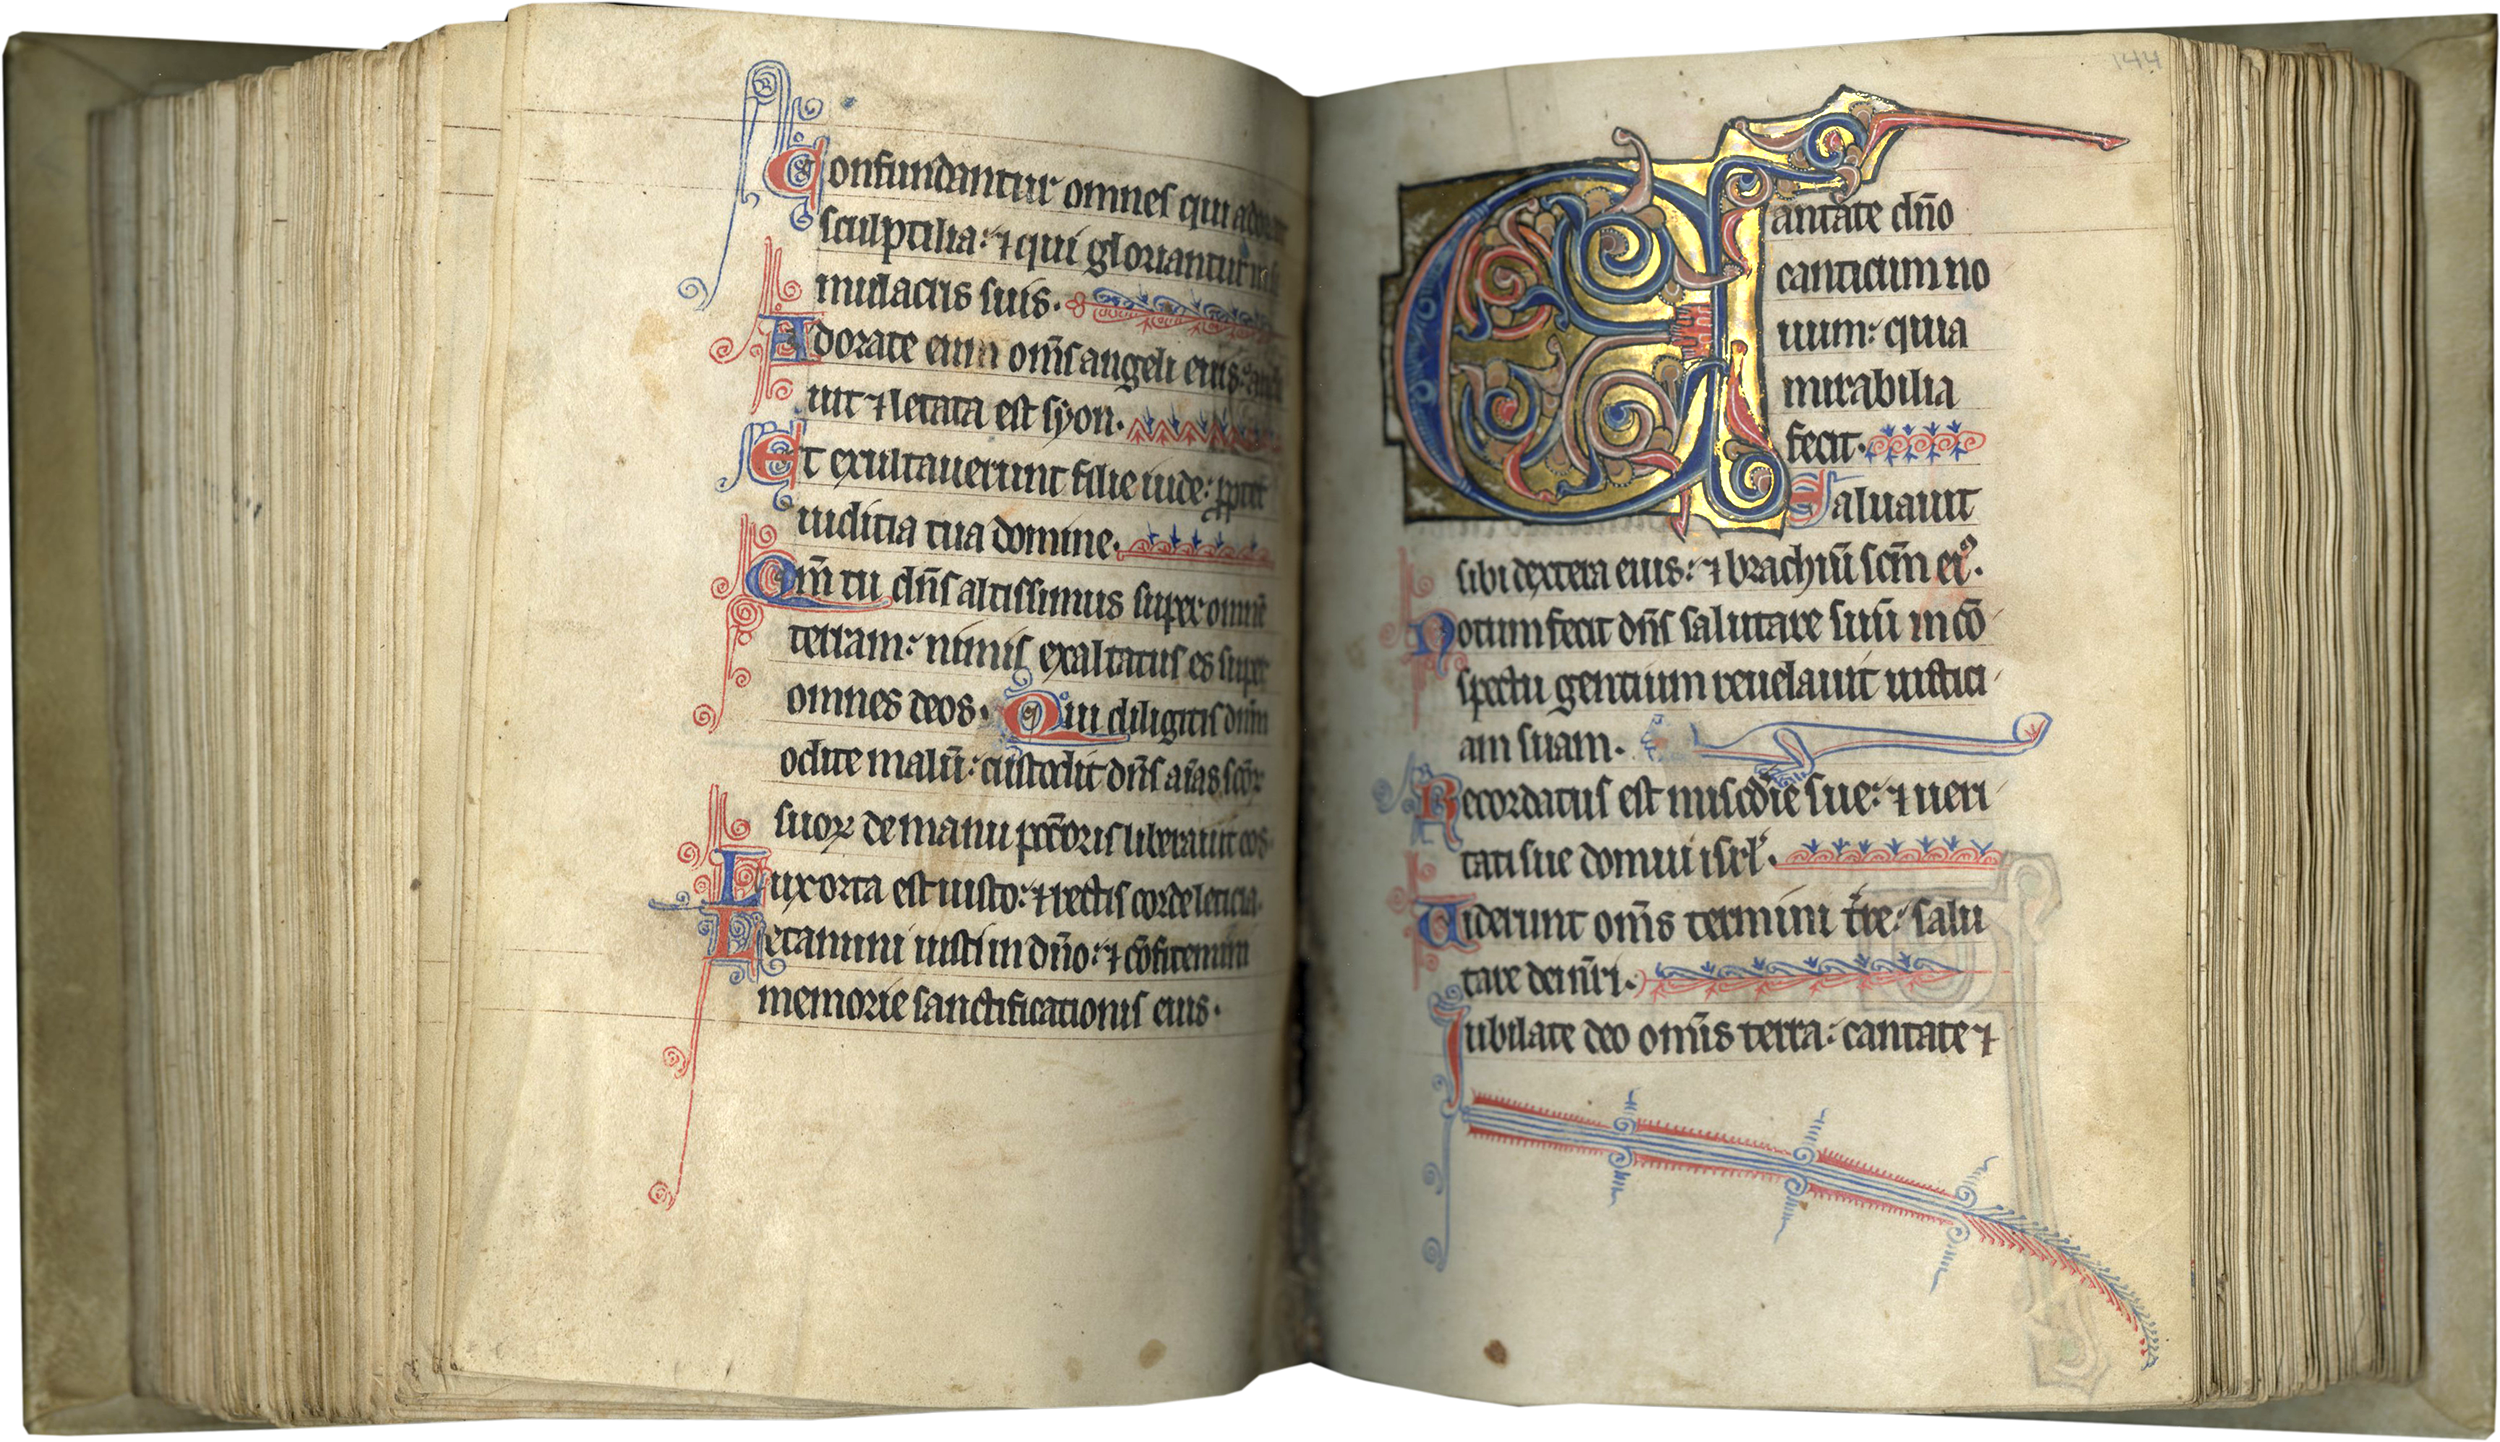 Confundantur omnes qui ador
sculptilia: ⁊ qui gloriantur in si
mulacris suis.
Adorate eum om̄s angeli eius: audi
uit ⁊ letata est syon.
Et exultauerunt filie iude: ꝓpter
iudicia tua domine.
Qm̄ tu dn̄s altissimus super omnē
terram: nimis exaltatus es super
omnes deos. Qui diligitis dn̄m
odite malū: custodit dn̄s aīas scōꝝ
suoꝝ de manu pcc̄oris liberauit eos.
Lux orta est iusto: ⁊ rectis corde leticia.
Letamini iusti in dn̄o: ⁊ cōfitemini
memorie sanctificationis eius.
144
Cantate dn̄o
canticum no
uum: quia
mirabilia
fecit.
Saluauit
sibi dextera eius: ⁊ brachiū scm̄ eiꝰ.
Notum fecit dn̄s salutare suū in cō
spectu gentium reuelauit iustici
am suam.
Recordatus est mis̄cdie sue: ⁊ ueri
tati sue domui isrl̓.
Uiderunt om̄s termini tr̄e: salu
tare dei nr̄i.
Iubilate deo om̄is terra: cantate ⁊